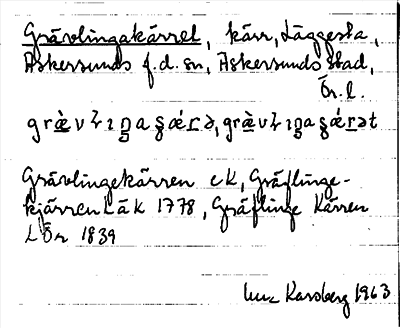 Grävlingakärret, kärr, Läggesta,
Askersunds f.d. sn, Askersunds stad,
Ör. l.
græ̀vlıŋaʂǽrə, græ̀vlıŋaʂǽrət
Grävlingekärren EK, Gräflinge-
kjärren LäK 1778, Gräflinge Kärren
LÖr 1839
Karsberg 1963